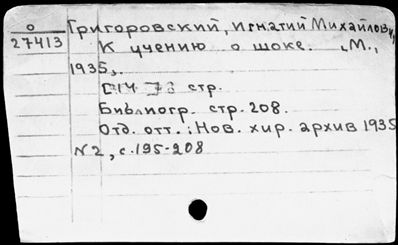 О
27413
Григоровский, Игнатий Михайлови
К учению о шоке. М.,
1935,
стр.
Библиогр. стр. 208.
Отд. отт.: Нов. хир. архив 1935
N2, с. 195-208